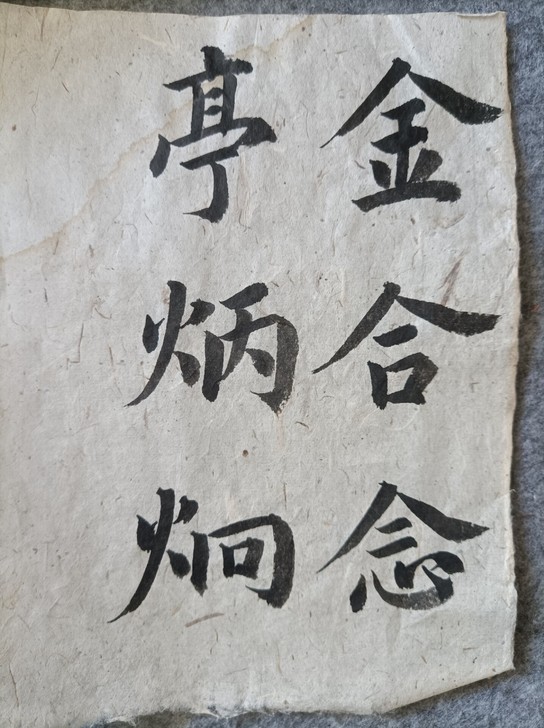 金合念
亭炳炯